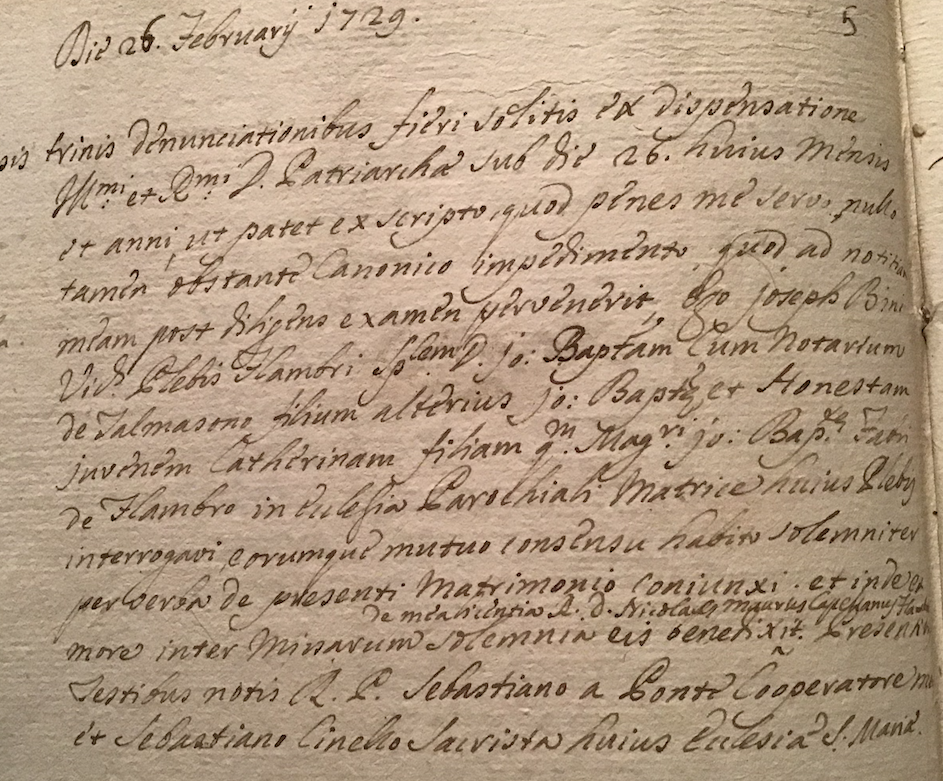 5
Die 26. February 1729.
trinis denunciationibus fieri solitis ex dispensatione
Ill.mi et R.mi D. Patriarchæ sub die 26. huius Mensis
et anni, ut patet ex scripto, quod penes me servo, nullo
tamen obstante Canonico impedimento, quod ad notitia
meam post diligens examen pervenerit, Ego Joseph Bini
Vic.s Plebis Flambri Sp.lem D. Jo: Baptãm Notarium
de Talmasono filium alterius Jo: Baptæ, et Honestam
juvenem Catherinam filiam q.m Mag.ri Jo: Bap.tæ
de Flambro in Eclesia Parochiali Matrice huius Plebis
interrogavi, eorumque mutuo consensu habito solemniter
per verba de presenti Matrimonio coniunxi. et inde ex
de mea licentia R. D. Nicolaus Maurus Capellanus
more inter Missarum solemnia eis benedixit. Presentib
Testibus notis R. P. Sebastiano a Ponte Cõoperatore
et Sebastiano Cinello Sacrista huius Eclesiæ S. Mariæ.